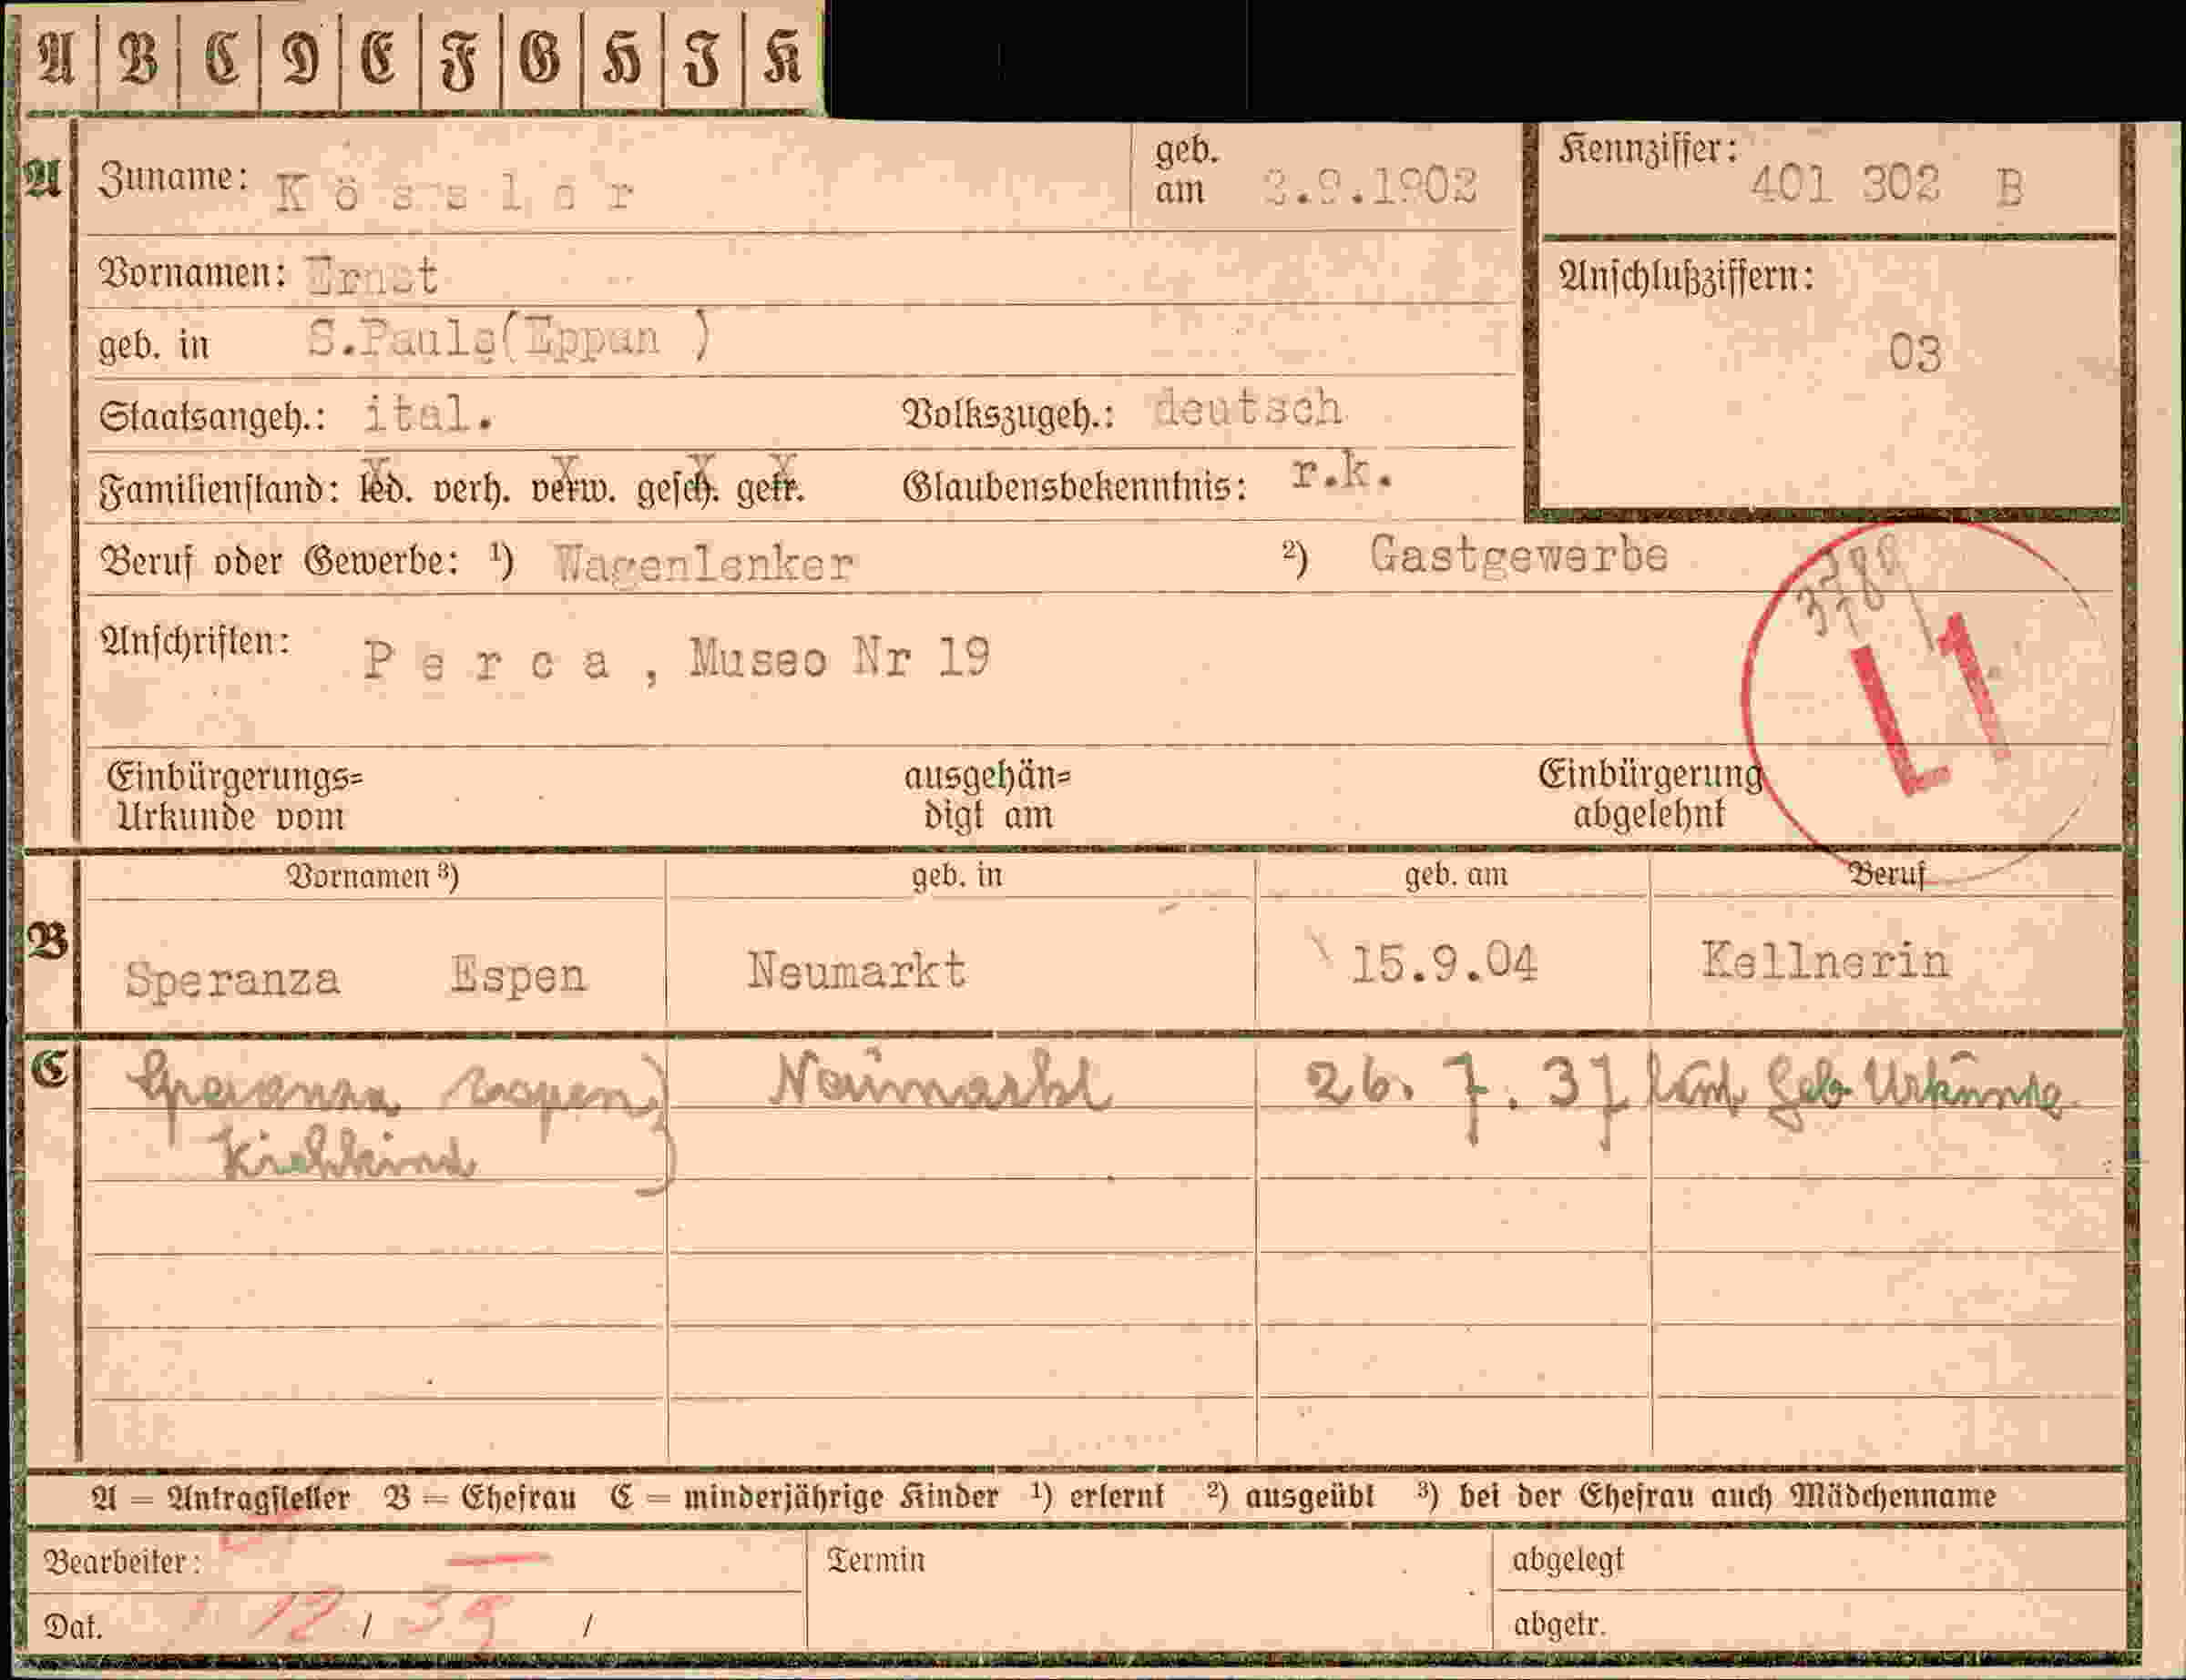 A B C D E F G H I K
A Zuname: Kössler geb. am 2.9.1902 Kennziffer: 401 302 B
Vornamen: Ernst
Anschlußziffern:
geb. in S.Pauls(Eppan )
03
Staatsangeh.: ital. Volkszugeh.: deutsch
Familienstand: led. verh. verw. gesch. getr. Glaubensbekenntnis: r.k.
Beruf oder Gewerbe: ¹) Wagenlenker ²) Gastgewerbe
Anschriften: Perca, Museo Nr 19
L1
Einbürgerungs= ausgehän= Einbürgerung
Urkunde vom digt am abgelehnt
Vornamen ³) geb. in geb. am Beruf
B Speranza Espen Neumarkt 15.9.04 Kellnerin
C Speranza Neumarkt 26. 7. 37 laut Geb Urkunde
A = Antragsteller B = Ehefrau C = minderjährige Kinder ¹) erlernt ²) ausgeübt ³) bei der Ehefrau auch Mädchenname
Bearbeiter: Termin abgelegt
Dat. 12 / 39 / abgetr.